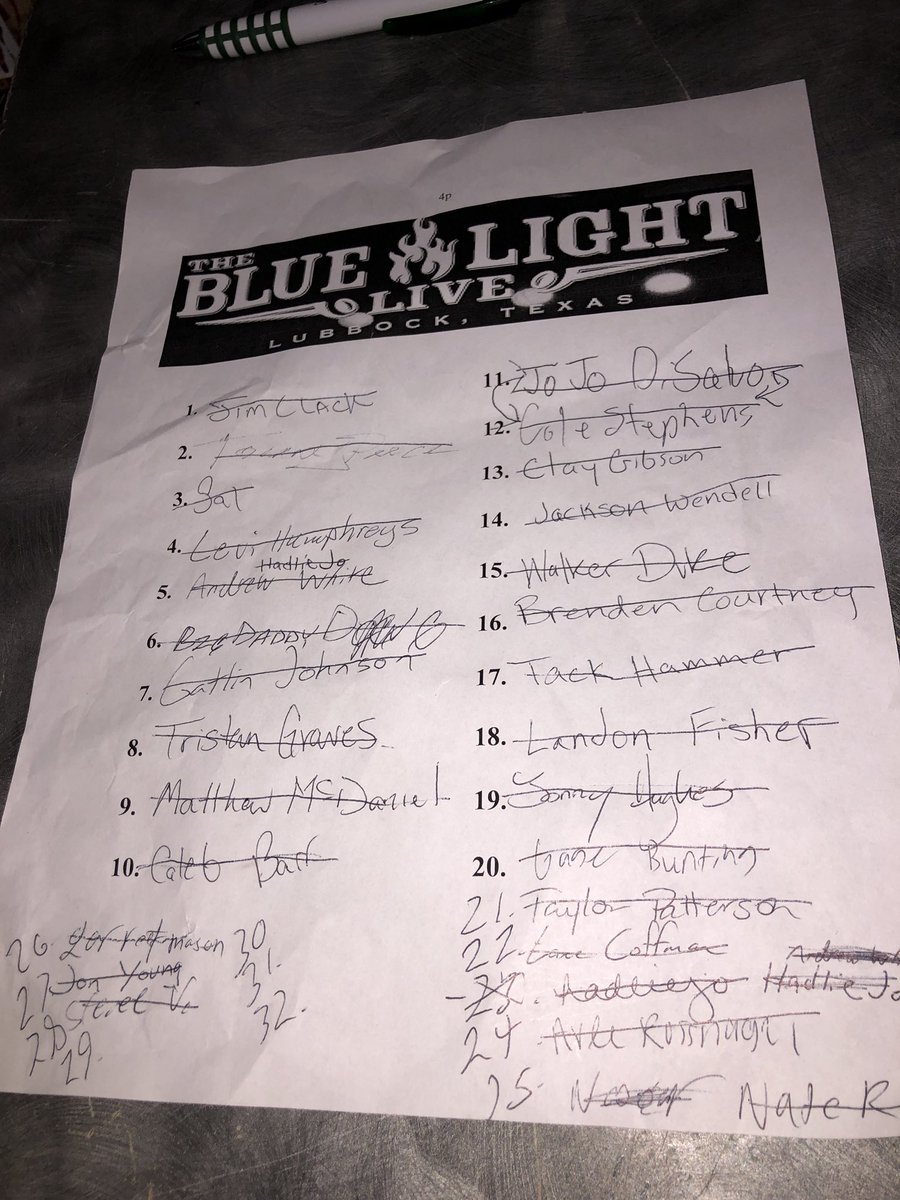 4p
THE
BLUE LIGHT
LIVE
LUBBOCK, TEXAS
1. Jim Clack
2.
3. Sat
4. Levi Humphreys
Hadlie Jo
5. Andrew White
6. BIG DADDY
7. Gatlin Johnson
8. Tristan Graves
9. Matthew McDaniel
10. Caleb
11. Jo Jo DiSalvo
12. Cole Stephens
13. Clay Gibson
14. Jackson Wendell
15. Walker Duke
16. Brenden Courtney
17. Jack Hammer
18. Landon Fisher
19. Sonny Hughes
20. Gane Bunting
21. Taylor Patterson
22. Lane Coffman
Andrew
Hadlie Jo
24.
25. Nate R
26. Mason
27. Jon Young
28.
29.
30.
31.
32.